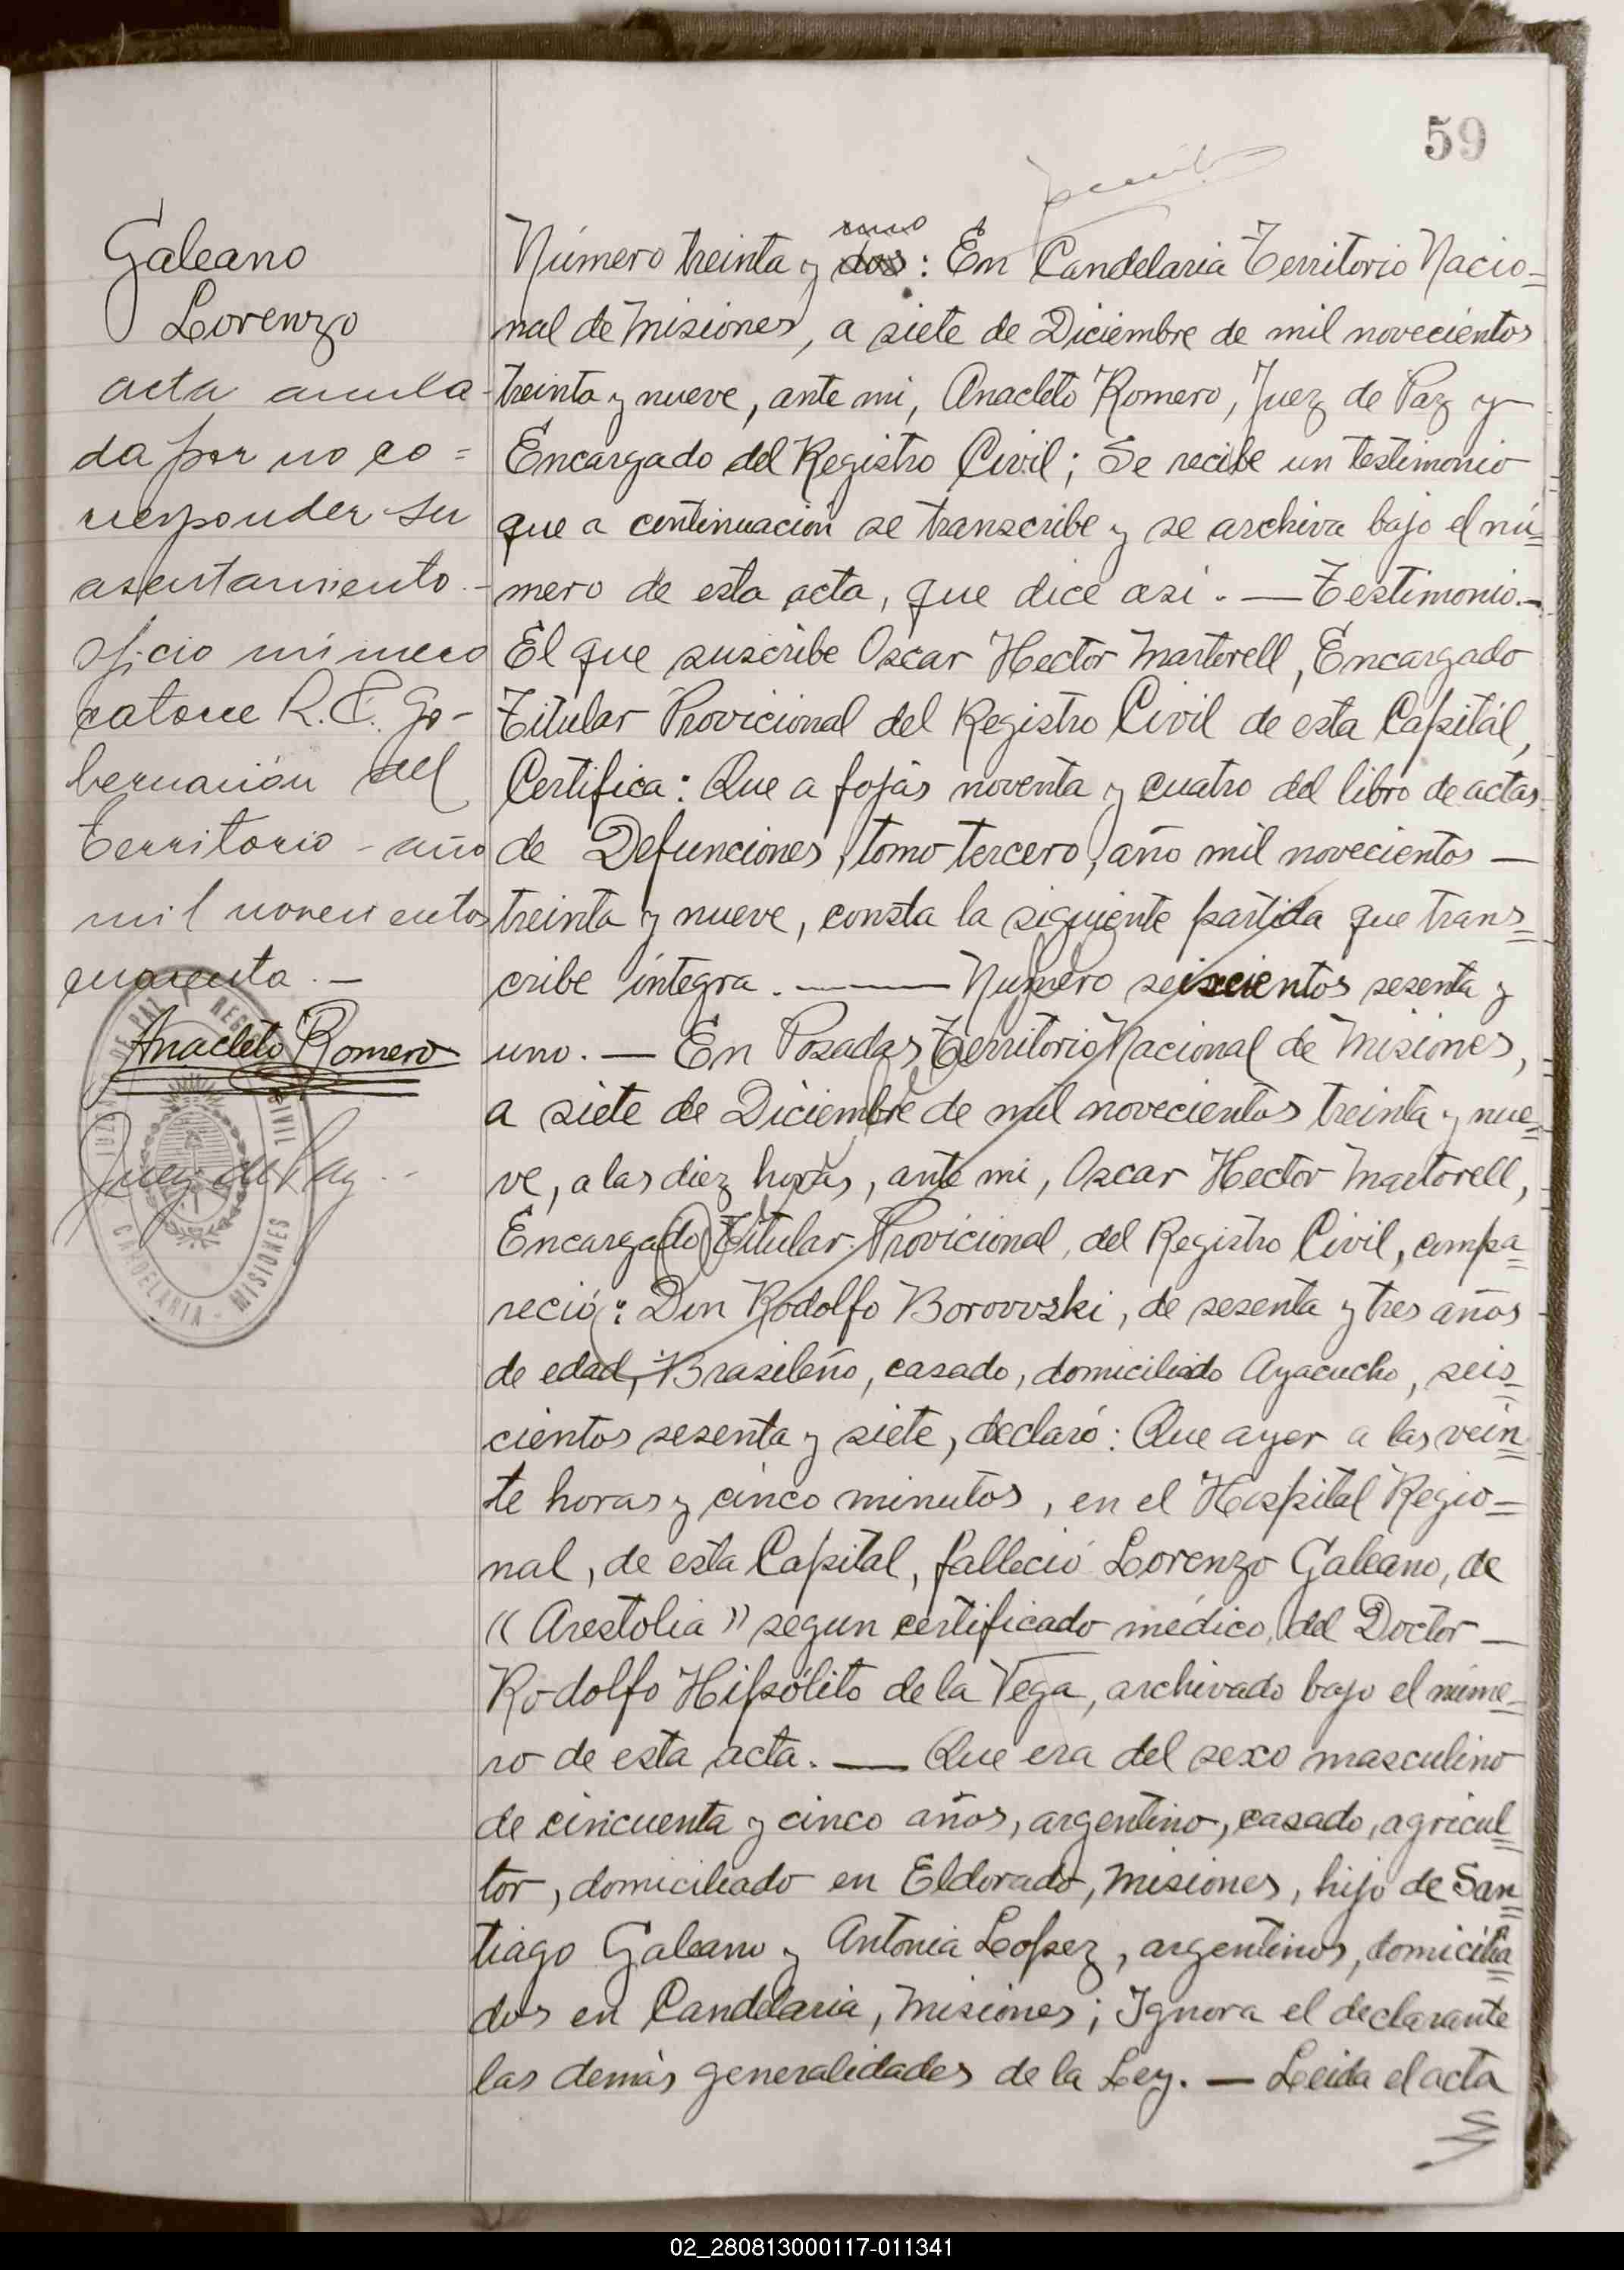 59
Galeano
Lorenzo
acta anula-
da por no co=
rresponder su
asentamiento.-
Oficio número
catorce R.C. Go-
bernación del
Territorio - año
mil novecientos
cuarenta.-
Anacleto Romero
Juez de Paz
JUZGADO DE PAZ Y REGISTRO CIVIL
CANDELARIA - MISIONES
uno
Número treinta y dos: En Candelaria Territorio Nacio=
nal de Misiones, a siete de Diciembre de mil novecientos
treinta y nueve, ante mi, Anacleto Romero, Juez de Paz y
Encargado del Registro Civil; Se recibe un testimonio
que a continuación se transcribe y se archiva bajo el nú=
mero de esta acta, que dice asi. — Testimonio.-
El que suscribe Oscar Hector Martorell, Encargado
Titular Provicional del Registro Civil de esta Capitál,
Certifica: Que a fojas noventa y cuatro del libro de actas
de Defunciones, tomo tercero, año mil novecientos —
treinta y nueve, consta la siguiente partida que trans=
cribe íntegra. — Número seiscientos sesenta y
uno. — En Posadas Territorio Nacional de Misiones,
a siete de Diciembre de mil novecientos treinta y nue=
ve, a las diez horas, ante mi, Oscar Hector Martorell,
Encargado Titular Provicional, del Registro Civil, compa=
reció: Don Rodolfo Borovvski, de sesenta y tres años
de edad, Brasileño, casado, domiciliado Ayacucho, seis=
cientos sesenta y siete, declaró: Que ayer a las vein=
te horas y cinco minutos, en el Hospital Regio=
nal, de esta Capital, falleció Lorenzo Galeano, de
"Arestolia" segun certificado médico, del Doctor —
Rodolfo Hipólito de la Vega, archivado bajo el núme=
ro de esta acta. — Que era del sexo masculino
de cincuenta y cinco años, argentino, casado, agricul=
tor, domiciliado en Eldorado, Misiones, hijo de San=
tiago Galeano y Antonia Lopez, argentinos, domicilia=
dos en Candelaria, Misiones; Ignora el declarante
las demás generalidades de la Ley. — Leida el acta
02_280813000117-011341